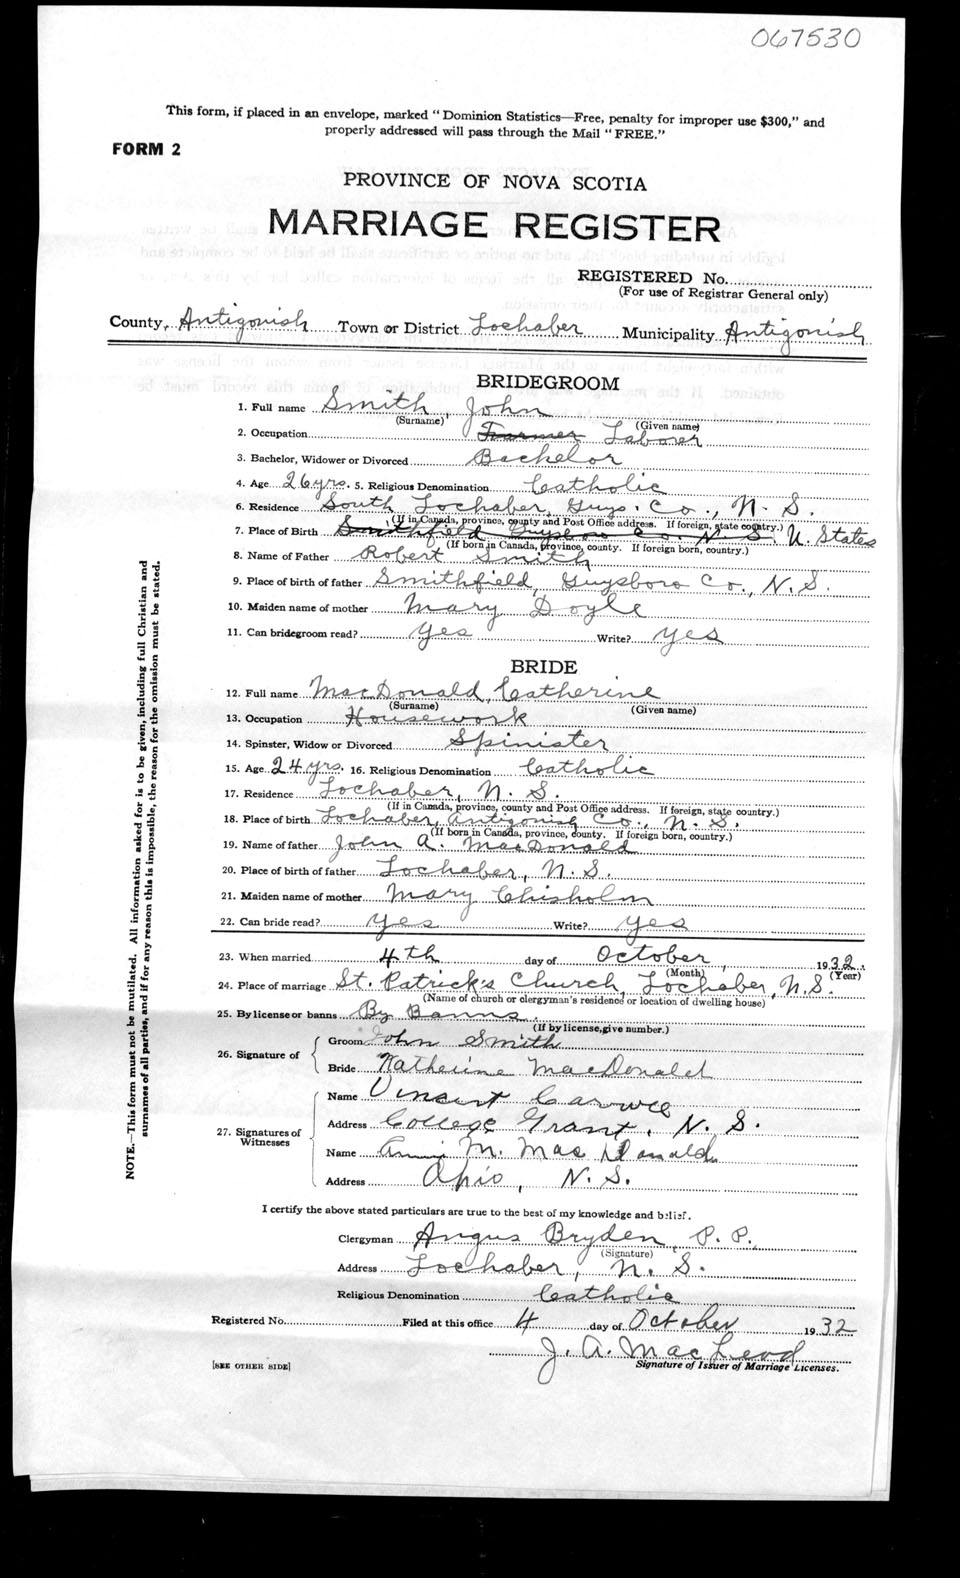 067530
This form, if placed in an envelope, marked "Dominion Statistics—Free, penalty for improper use $300," and
properly addressed will pass through the Mail "FREE."
FORM 2
PROVINCE OF NOVA SCOTIA
MARRIAGE REGISTER
REGISTERED No.
(For use of Registrar General only)
County, Antigonish Town or District Lochaber Municipality Antigonish
BRIDEGROOM
1. Full name Smith, John
(Surname) (Given name)
2. Occupation Farmer Laborer
3. Bachelor, Widower or Divorced Bachelor
4. Age 26 yrs. 5. Religious Denomination Catholic
6. Residence South Lochaber, Guys. Co., N. S.
(If in Canada, province, county and Post Office address. If foreign, state country.)
7. Place of Birth Smithfield Guysboro Co. N. S. U. States
(If born in Canada, province, county. If foreign born, country.)
8. Name of Father Robert Smith
9. Place of birth of father Smithfield, Guysboro Co., N. S.
10. Maiden name of mother Mary Doyle
11. Can bridegroom read? Yes Write? Yes
BRIDE
12. Full name MacDonald, Catherine
(Surname) (Given name)
13. Occupation Housework
14. Spinster, Widow or Divorced Spinister
15. Age 24 yrs. 16. Religious Denomination Catholic
17. Residence Lochaber, N. S.
(If in Canada, province, county and Post Office address. If foreign, state country.)
18. Place of birth Lochaber, Antigonish Co., N. S.
(If born in Canada, province, county. If foreign born, country.)
19. Name of father John A. MacDonald
20. Place of birth of father Lochaber, N. S.
21. Maiden name of mother Mary Chisholm
22. Can bride read? Yes Write? Yes
23. When married 4th day of October, 1932.
(Month) (Year)
24. Place of marriage St. Patrick's Church, Lochaber, N. S.
(Name of church or clergyman's residence or location of dwelling house)
25. By license or banns By Banns.
(If by license, give number.)
26. Signature of
Groom John Smith
Bride Katherine MacDonald
27. Signatures of Witnesses
Name Vincent
Address College Grant, N. S.
Name M. MacDonald
Address Ohio, N. S.
I certify the above stated particulars are true to the best of my knowledge and belief.
Clergyman Angus Bryden, P. P.,
(Signature)
Address Lochaber, N. S.
Religious Denomination Catholic
Registered No. Filed at this office 4 day of October 1932
J. A. MacLeod
[SEE OTHER SIDE] Signature of Issuer of Marriage Licenses.
NOTE.—This form must not be mutilated. All information asked for is to be given, including full Christian and
surnames of all parties, and if for any reason this is impossible, the reason for the omission must be stated.